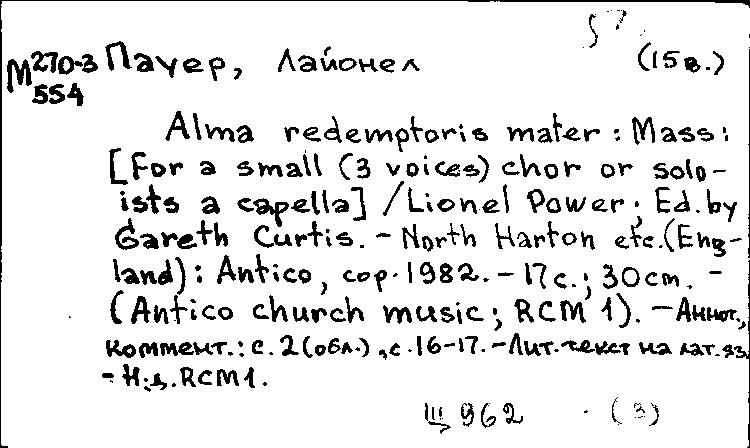 М 270-3 Пауер, Лайонел (15 в.)
554
Alma redemptoris mater : Mass :
[For a small (3 voices) chor or solo-
ists a capella] / Lionel Power ; Ed. by
Gareth Curtis. - North Harton etc. (Eng-
land) : Antico, cop. 1982. - 17 с. ; 30 cm. -
(Antico church music ; RCM 1). - Аннот.,
коммент. : с. 2 (обл.), с. 16-17. - Лит. текст на лат. яз.
- Н. д. RCM1.
Щ 962 (3)